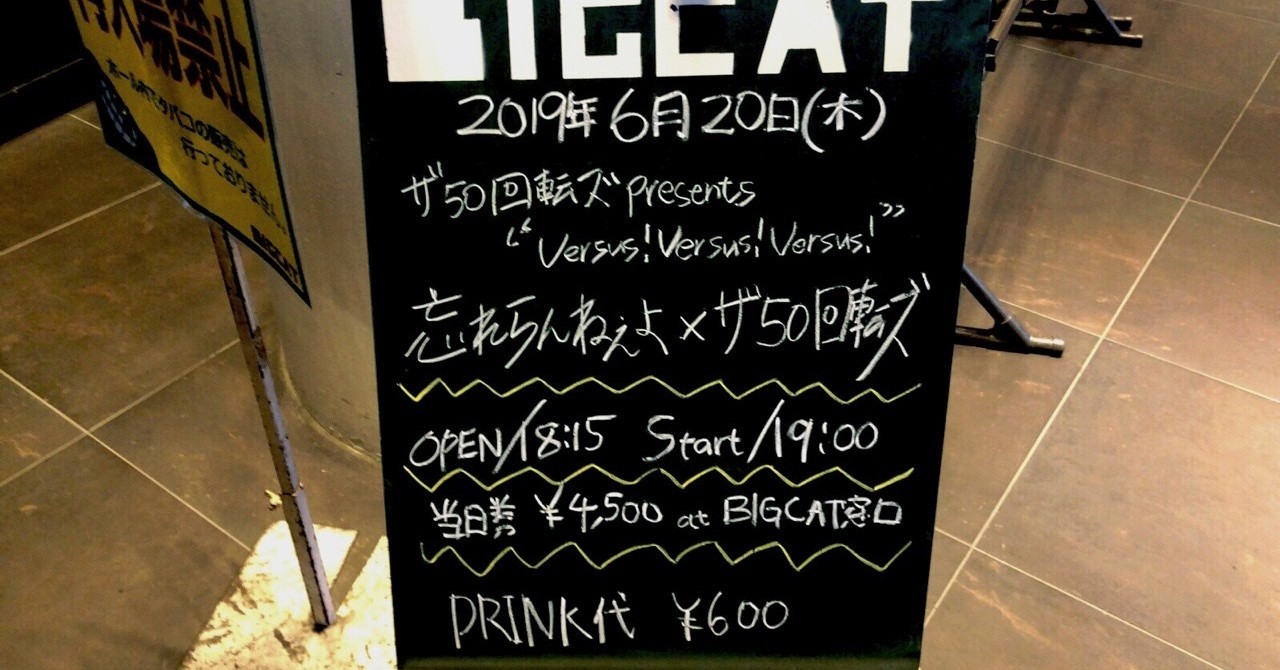 BIGCAT
2019年6月20日(木)
ザ50回転ズ presents
“Versus! Versus! Versus!”
忘れらんねえよ×ザ50回転ズ
OPEN/18:15 Start/19:00
当日券 ¥4,500 at BIGCAT窓口
DRINK代 ¥600
再入場禁止
ホール内でタバコの販売は
行っておりません。
BIGCAT